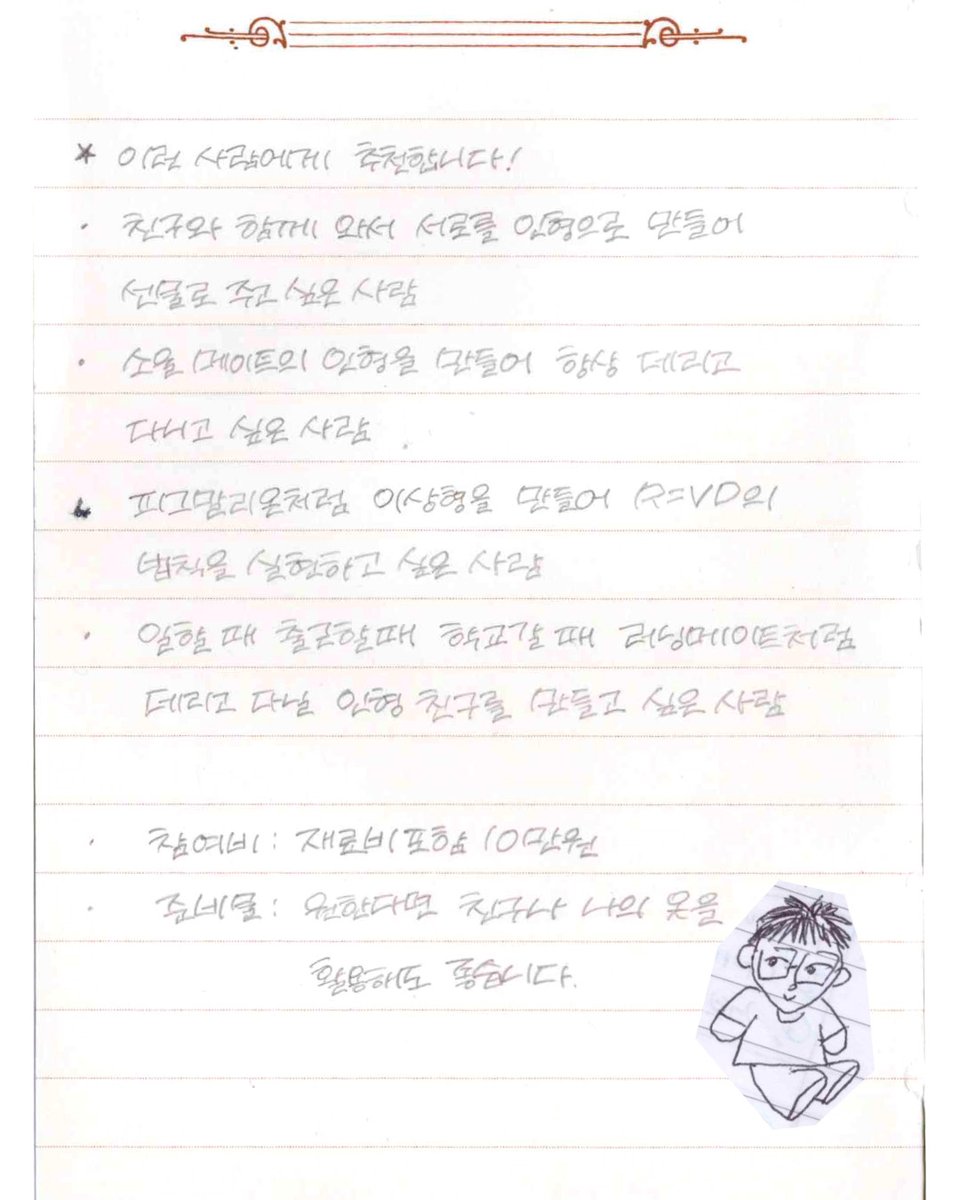 * 이런 사람에게 추천합니다!
· 친구와 함께 와서 서로를 인형으로 만들어
선물로 주고 싶은 사람
· 소울 메이트의 인형을 만들어 항상 데리고
다니고 싶은 사람
· 피그말리온처럼 이상형을 만들어 R=VD의
법칙을 실현하고 싶은 사람
· 일할 때 출근할때 학교갈 때 러닝메이트처럼
데리고 다닐 인형 친구를 만들고 싶은 사람
· 참여비: 재료비포함 10만원
· 준비물: 원한다면 친구나 나의 옷을
활용해도 좋습니다.